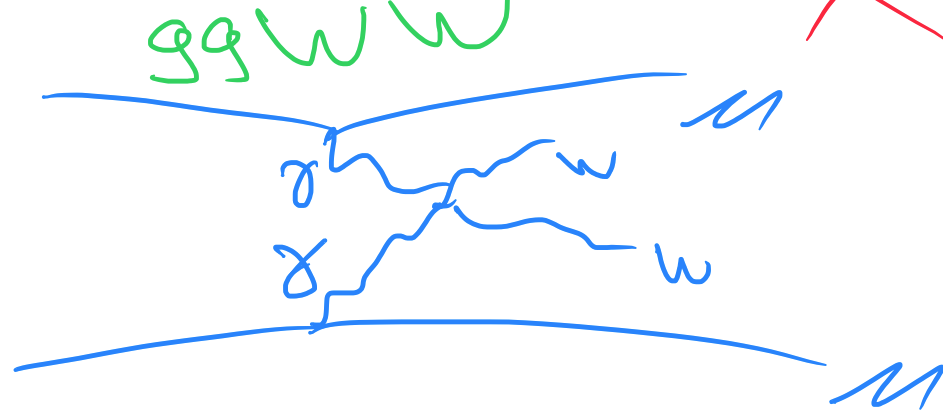 ggWW
μ
γ
W
γ
W
μ